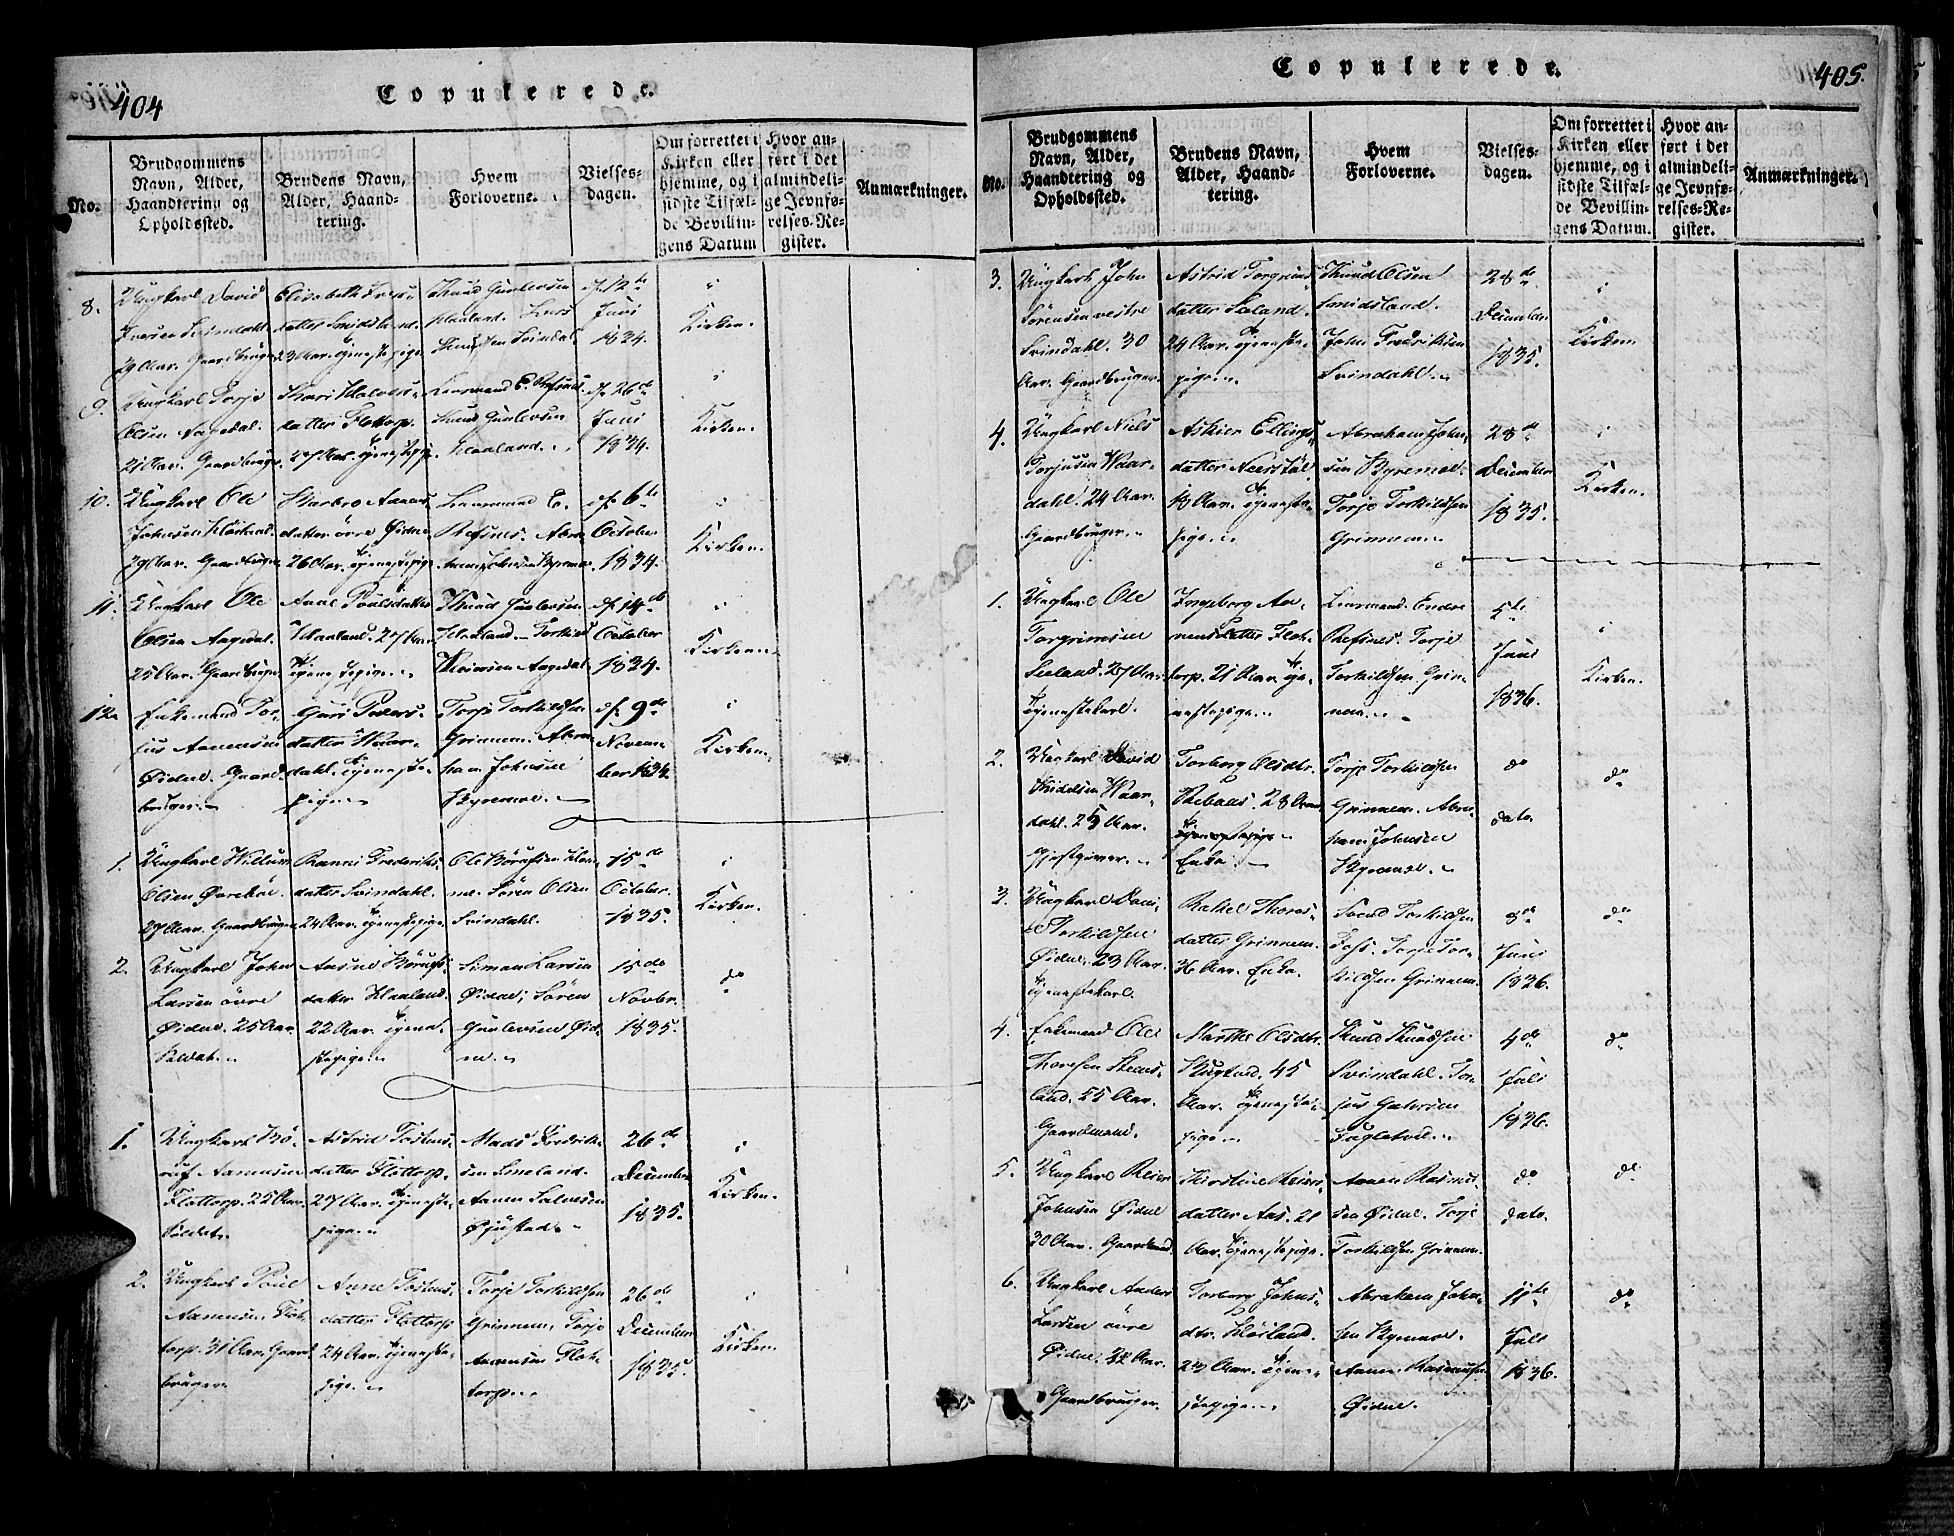 404
Copulerede.
No.
Brudgommens Navn, Alder, Haandtering og Opholdssted.
Brudens Navn, Alder, Haandtering.
Hvem Forloverne.
Vielsesdagen.
Om forrettet i Kirken eller hjemme, og i sidste Tilfælde Bevillingens Datum
Hvor anført i det almindelige Jevnførelses-Register.
Anmærkninger.
8.
Ungkarl David
Iversen Svindahl
29 Aar. Gaardbruger
Elisabeth Ivers
datter Smidsland.
23 Aar. Tjenestepige
Knud Gunlevsen
Haaland. Lars
Knudsen Svindal
d. 12te
Juni
1834.
Kirken.
9.
Ungkarl Torje
Olsen Aagedal.
21 Aar. Gaardbruger
Kari Halvors
datter Flottorp.
27 Aar. Tjenestepige
Lensmand E. Refsnes
Knud Gunlevsen
Haaland.
d. 26de
Juni
1834.
Kirken.
10.
Ungkarl Ole
Johnsen
29 Aar. Gaardbruger
Aanens
datter øvre Øidne
26 Aar. Tjenestepige
Lensmand E.
Refsnes. Abra
ham Johnsen Byremo
d. 6te
October
1834.
Kirken.
11.
Ungkarl Ole
Olsen Aagedal.
25 Aar. Gaardbruger
Anne Poulsdatter
Haaland. 27 Aar.
Tjenestepige
Knud Gunlevsen
Haaland. Torkild
Reiersen Aagedal
d. 14de
October
1834.
Kirken.
12.
Enkemand Tor
jus Aanensen
Øidne. Gaard
bruger.
Guri Peders
datter Waar
dahl. Tjeneste
pige
Torje Torkildsen
Grinnem. Abra
ham Johnsen
Byremo.
d. 9de
Novem
ber 1834.
Kirken.
1.
Ungkarl Willum
Olsen
27 Aar. Gaardbruger
Ranni Frederiks
datter Svindahl.
24 Aar. Tjenestepige
Ole
Søren Olsen
Svindahl.
15de
October
1835.
Kirken.
2.
Ungkarl John
Larsen øvre
Øidne. 25 Aar.
Soldat.
Aasne
datter Haaland
22 Aar. Tjene
stepige
Simon Larsen
Øidne; Søren
Gunlevsen Øid
ne.
15de
Novbr.
1835.
do
1.
Ungkarl
Aanensen
Flottorp. 25 Aar.
Soldat.
Astrid Tostens
datter Flottorp.
27 Aar. Tjeneste
pige
Mads Fredrik
sen
Aanen Salvesen
26de
December
1835.
Kirken.
2.
Ungkarl Poul
Aanensen Flot
torp. 31 Aar. Gaard
bruger
Anne Tostens
datter Flottorp
24 Aar. Tjeneste
pige.
Torje Torkildsen
Grinnem, Torje
Aanensen Flot
torp.
26de
December
1835.
Kirken.
Copulerede.
405.
No.
Brudgommens Navn, Alder, Haandtering og Opholdssted.
Brudens Navn, Alder, Haandtering.
Hvem Forloverne.
Vielsesdagen.
Om forrettet i Kirken eller hjemme, og i sidste Tilfælde Bevillingens Datum.
Hvor anført i det almindelige Jevnførelses-Register.
Anmærkninger.
3.
Ungkarl John
Sørensen vestre
Svindahl. 30
Aar. Gaardbruger.
Astrid Torgrims
datter Seland.
24 Aar. Tjeneste
pige.
Knud Olsen
Smidsland.
John Fredriksen
Svindahl.
28de
December
1835.
Kirken.
4.
Ungkarl Niels
Torjusen Waar
dahl. 24 Aar.
Gaardbruger.
Ellings
datter
18 Aar. Tjeneste
pige.
Abraham John
sen Byremoe.
Torje Torkildsen
Grinnem.
28de
December
1835.
Kirken.
1.
Ungkarl Ole
Torgrimsen
Seland. 27 Aar.
Tjenestekarl.
Ingeborg Aa
nensdatter Flot
torp. 21 Aar. Tje
nestepige.
Lensmand Endre
Refsnes. Torje
Torkildsen Grin
nem.
5te
Juni
1836.
Kirken.
2.
Ungkarl David
Waar
dahl. 25 Aar.
Gjestgiver.
Torborg Olsdtr.
28 Aar.
Tjenestepige
Enke.
Torje Torkildsen
Grinnem. Abra
ham Johnsen
Byremoe.
do
dato.
do
3.
Ungkarl Dani
el Torkildsen
Øidne. 23 Aar.
Tjenestekarl.
Rakel Thores
datter Grinnem.
36 Aar. Enke.
Svend Torkildsen
Foss. Torje Tor
kildsen Grinnem.
Juni
1836.
do
4.
Enkemand Ole
Thoresen
land. 55 Aar.
Gaardmand.
Marthe Olsdtr.
45
Aar. Tjeneste
pige
Knud Knudsen
Svindahl. Tor
jus
Fuglestved.
4de
Juli
1836.
do
5.
Ungkarl Reier
Johnsen Øidne
30 Aar.
Kirstine Reiers
datter Aas. 21
Aar. Tjenestepige.
Aanen Rasmus
sen Øidne. Torje
Torkildsen Grinnem.
do
dato.
do
6.
Ungkarl Anders
Larsen øvre
Øidne. 32 Aar.
Gaardbruger.
Torborg Johns
dtr.
23 Aar. Tjene
stepige.
Abraham John
sen Byremoe.
Aanen Rasmussen
Øidne.
11te
Juli
1836.
do